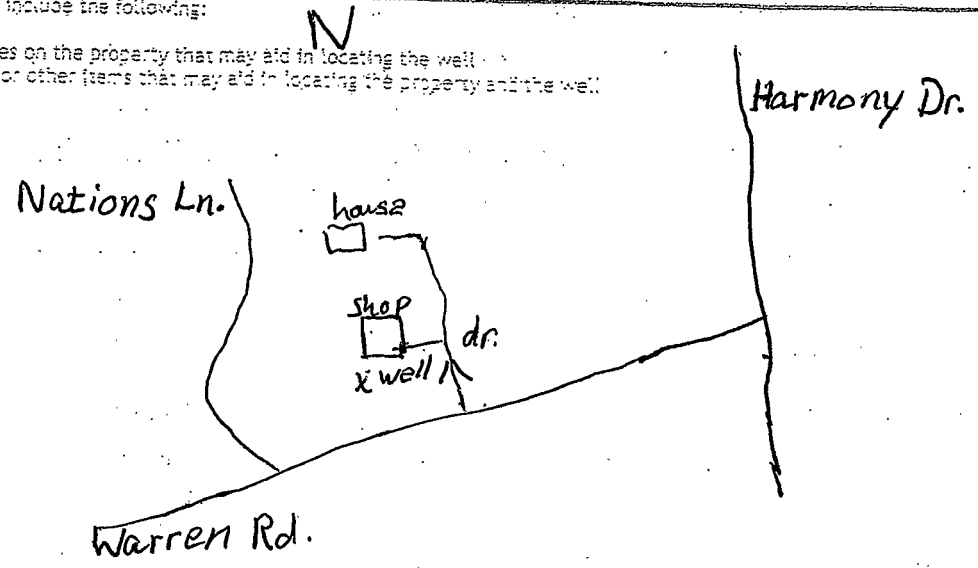 include the following:
N
es on the property that may aid in locating the well
or other items that may aid in locating the property and the well
Harmony Dr.
Nations Ln.
house
shop
dr.
x well
Warren Rd.